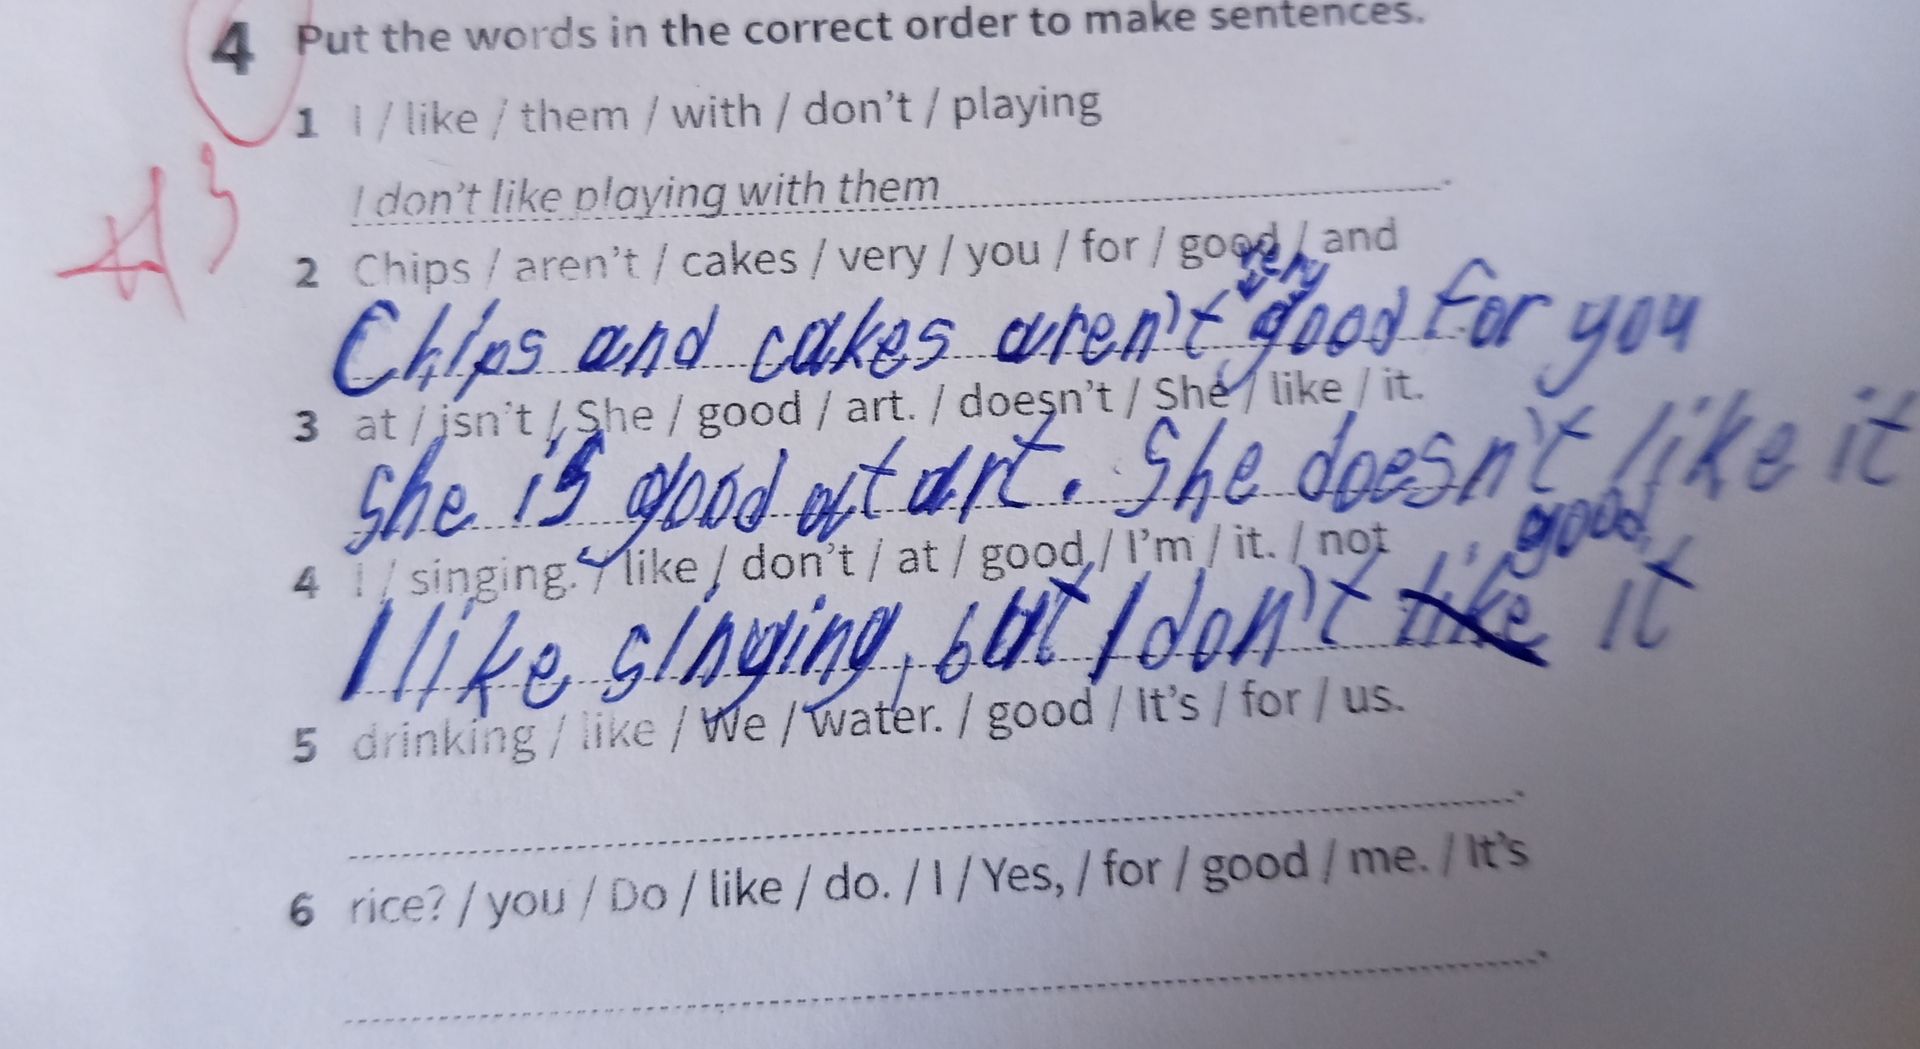 4 Put the words in the correct order to make sentences.
1 I / like / them / with / don't / playing
I don't like playing with them.
2 Chips / aren't / cakes / very / you / for / good / and
very
Chips and cakes aren't good for you
3 at / isn't / She / good / art. / doesn't / She / like / it.
She is good at art. She doesn't like it
4 I / singing. / like / don't / at / good / I'm / it. / not
good
I like singing, but I don't like it
5 drinking / like / We / water. / good / It's / for / us.
6 rice? / you / Do / like / do. / I / Yes, / for / good / me. / It's